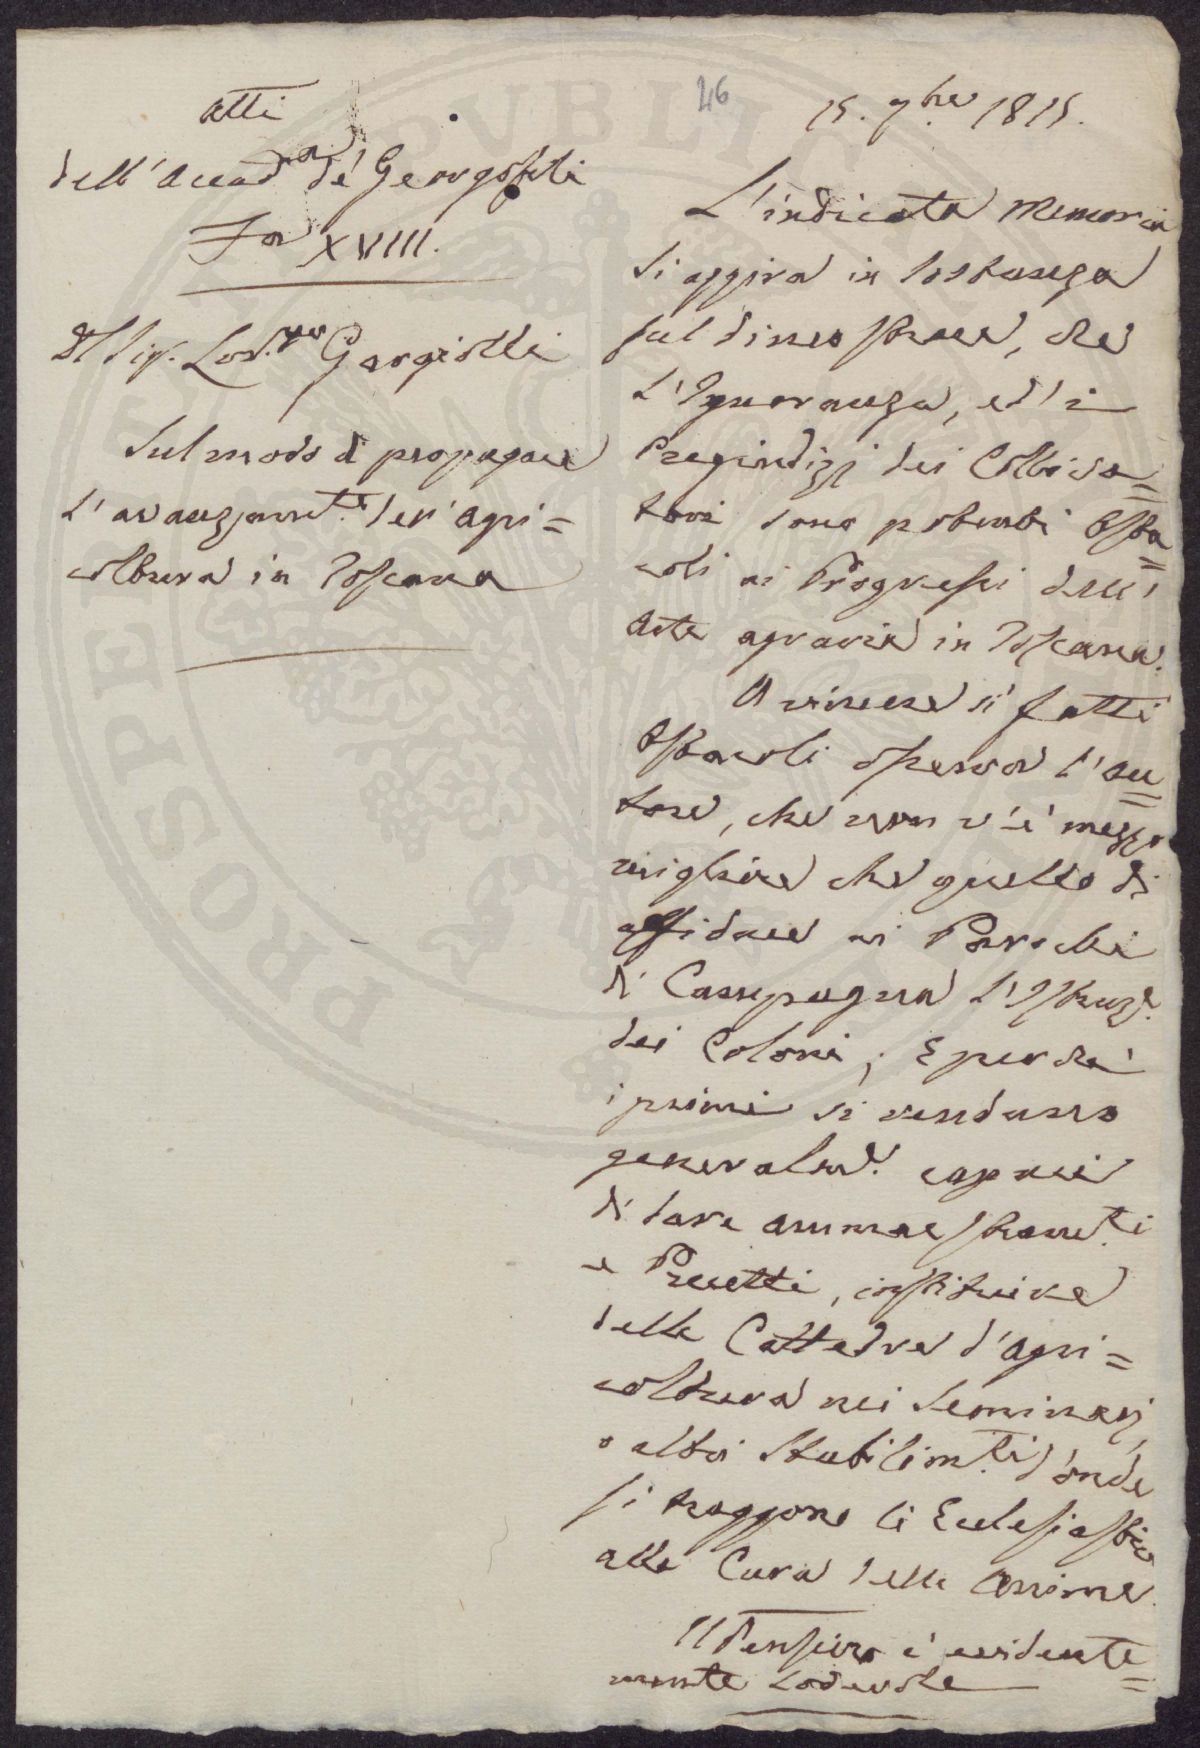 Atti
dell'Accad.a de' Georgofili
To XVIII.
Del Sig. Lod.co Gargiolli
Sul modo di propagare
l'avanzament.to dell'Agri=
coltura in Toscana
46
15. 9bre 1815.
L'indicata Memoria
si aggira in sostanza
sul dimostrare, che
l'Ignoranza, ed'i
Pregiudizj dei Coltiva=
tori sono potenti Osta=
coli ai Progressi dell'
Arte agraria in Toscana.
A vincere sì fatti
Ostacoli osserva l'Au=
tore, che non v'è mezzo
migliore che quello di
affidare ai Parochi
di Campagna l'Istruz.e
dei Coloni, e perchè
i primi si rendano
generalm.e capaci
di dare ammaestram.ti
e Precetti, instituire
delle Cattedre d'Agri=
coltura nei Seminarj,
o altri Stabilim.ti d'onde
si traggono li Eclesiastici
alla Cura delle Anime.
Il Pensiero è evidente=
mente Lodevole
PROSPERITATI PVBLICAE